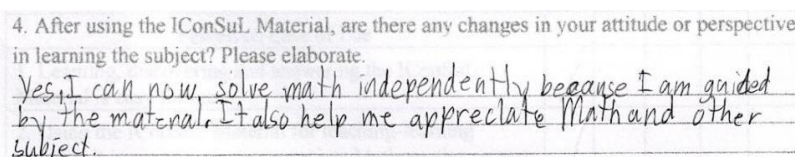 4. After using the IConSuL Material, are there any changes in your attitude or perspective
in learning the subject? Please elaborate.
Yes, I can now solve math independently because I am guided
by the materal. It also help me appreciate Math and other
subject.